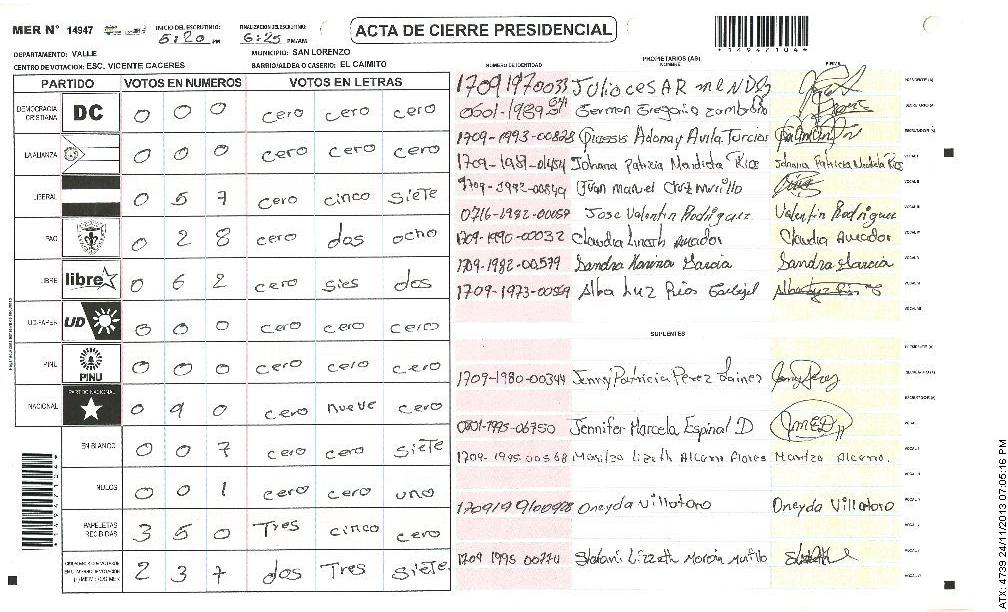 MER N° 14947 INICIO DEL ESCRUTINIO: 5:20 PM FINALIZACION DEL ESCRUTINIO: 6:25 PM/AM
ACTA DE CIERRE PRESIDENCIAL
1149471044
DEPARTAMENTO: VALLE MUNICIPIO: SAN LORENZO
CENTRO DE VOTACION: ESC. VICENTE CACERES BARRIO/ALDEA O CASERIO: EL CAIMITO
PARTIDO VOTOS EN NUMEROS VOTOS EN LETRAS
DEMOCRACIA CRISTIANA DC 0 0 0 cero cero cero
LA ALIANZA 0 0 0 cero cero cero
LIBERAL 0 5 7 cero cinco siete
PAC 0 2 8 cero dos ocho
LIBRE libre 0 6 2 cero sies dos
UD-FAPER UD 0 0 0 cero cero cero
PINU PINU 0 0 0 cero cero cero
NACIONAL PARTIDO NACIONAL 0 9 0 cero nueve cero
EN BLANCO 0 0 7 cero cero siete
NULOS 0 0 1 cero cero uno
PAPELETAS RECIBIDAS 3 5 0 Tres cinco cero
2 3 7 dos Tres siete
PROPIETARIOS (AS)
NUMERO DE IDENTIDAD NOMBRE FIRMA
Julio cesAR
German Gregorio
1709-1993-00828 Adonay Avila Turcios
Johana Patricia
Juan manuel Cruz Murillo
0716-1982-00057 Jose Valentin Rodriguez Valentin Rodriguez
1709-1990-00032 Claudia Amador Claudia Amador
1709-1982-00579 Sandra Karina Garcia Sandra Garcia
1709-1973-00569 Alba Luz Rios
SUPLENTES
1709-1980-00344 Jenny Patricia Perez Lainez Jenny Perez
0801-1995-06750 Jennifer Marcela Espinal D
1709-1995-00568 Maritza Lizeth Alcerro Flores Maritza Alcerro.
Oneyda Villatoro Oneyda Villatoro
Lizzeth
ATX: 4739 24/11/2013 07:05:16 PM